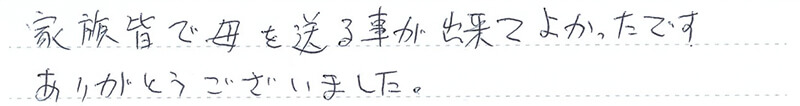 家族皆で母を送る事が出来てよかったです
ありがとうございました。